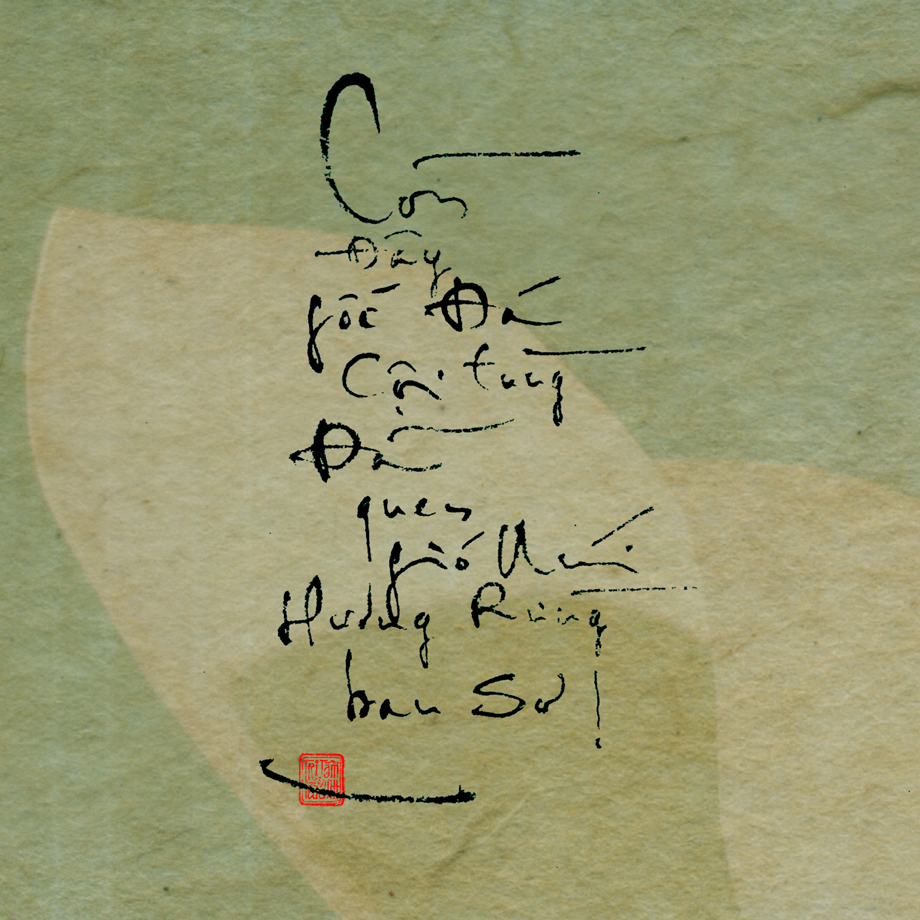 Còn
Đây
gốc Đá
Cội tùng
Đã
quen
gió Núi
Hương Rừng
ban Sơ !